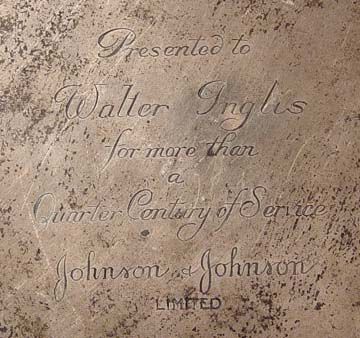 Presented to
Walter Inglis
for more than
a
Quarter Century of Service
Johnson & Johnson
LIMITED